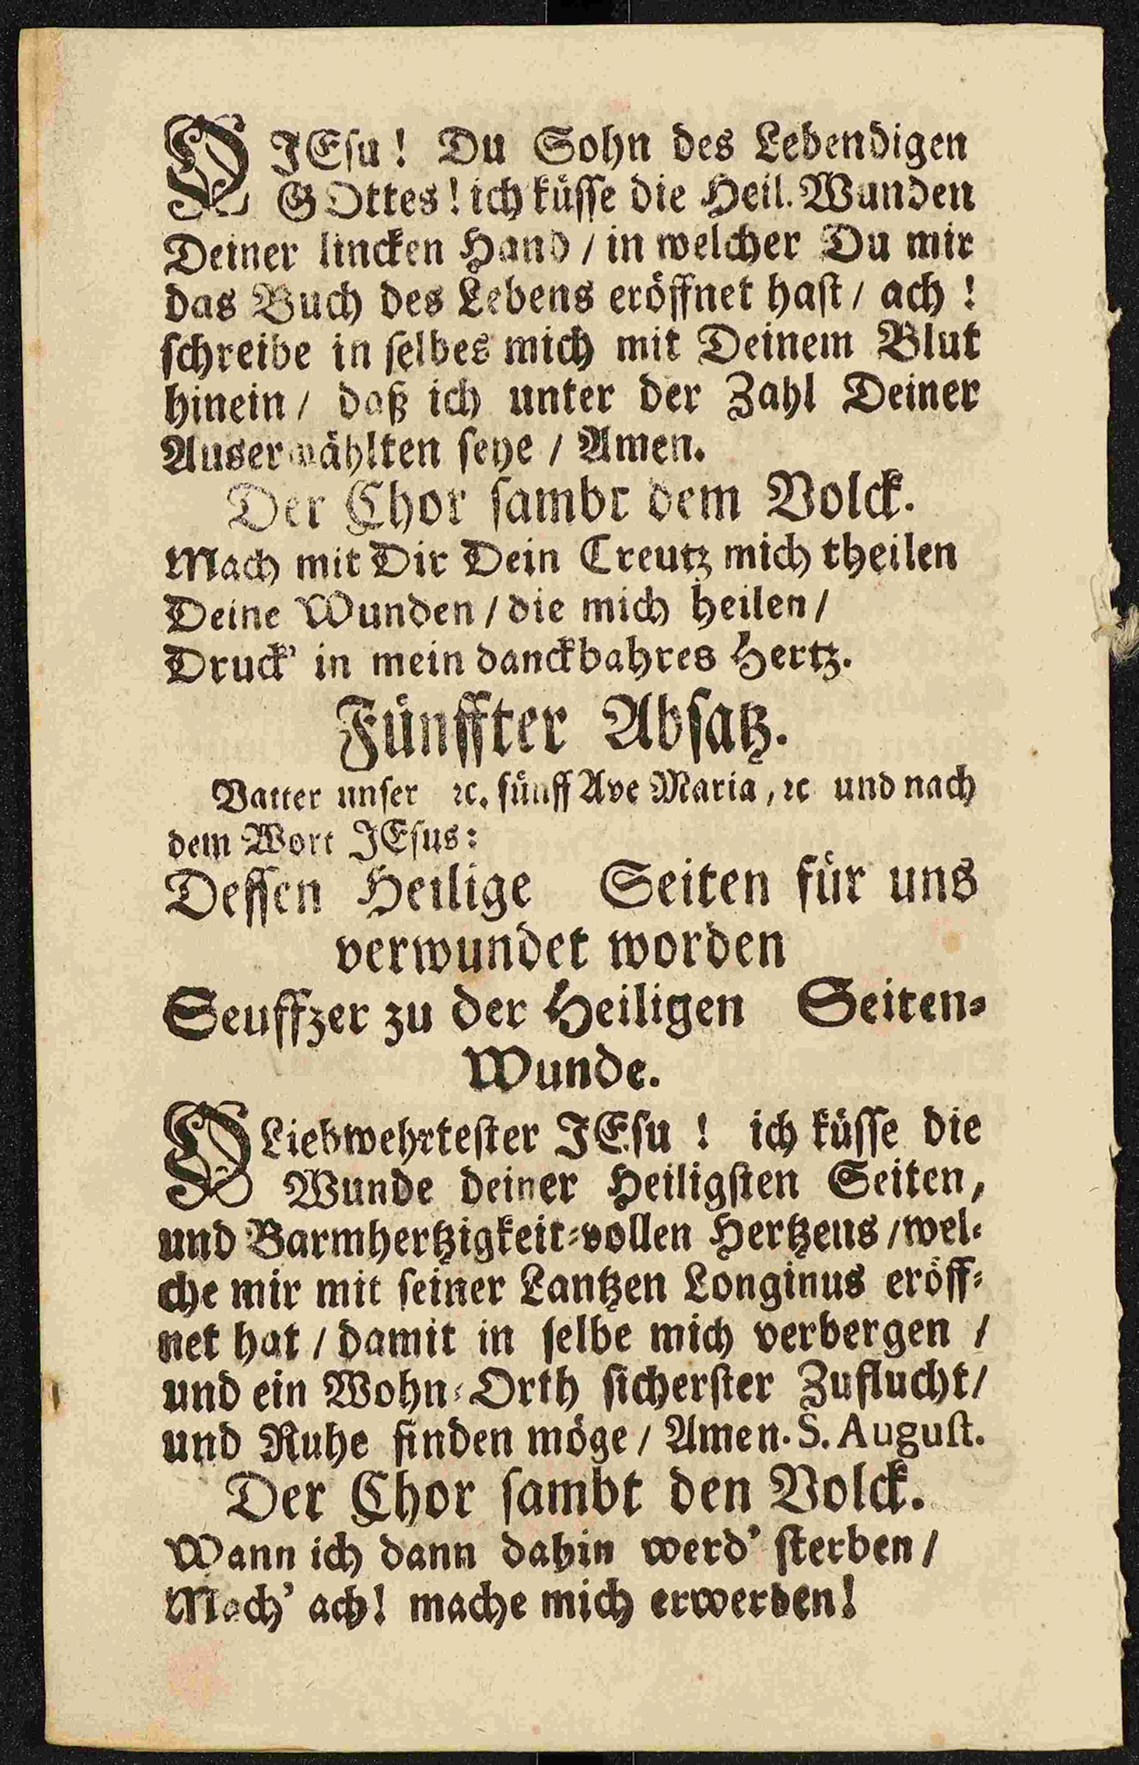 O JEsu! Du Sohn des Lebendigen
GOttes! ich küsse die Heil. Wunden
Deiner lincken Hand / in welcher Du mir
das Buch des Lebens eröffnet hast / ach !
schreibe in selbes mich mit Deinem Blut
hinein / daß ich unter der Zahl Deiner
Auserwählten seye / Amen.
Der Chor sambt dem Volck.
Mach mit Dir Dein Creutz mich theilen
Deine Wunden / die mich heilen /
Druck' in mein danckbahres Hertz.
Fünffter Absatz.
Vatter unser ꝛc. fünff Ave Maria, ꝛc und nach
dem Wort JEsus:
Dessen Heilige Seiten für uns
verwundet worden
Seuffzer zu der Heiligen Seiten-
Wunde.
O Liebwehrtester JEsu ! ich küsse die
Wunde deiner Heiligsten Seiten,
und Barmhertzigkeit-vollen Hertzens / wel-
che mir mit seiner Lantzen Longinus eröff-
net hat / damit in selbe mich verbergen /
und ein Wohn-Orth sicherster Zuflucht /
und Ruhe finden möge / Amen. S. August.
Der Chor sambt den Volck.
Wann ich dann dahin werd' sterben /
Mach' ach! mache mich erwerben!